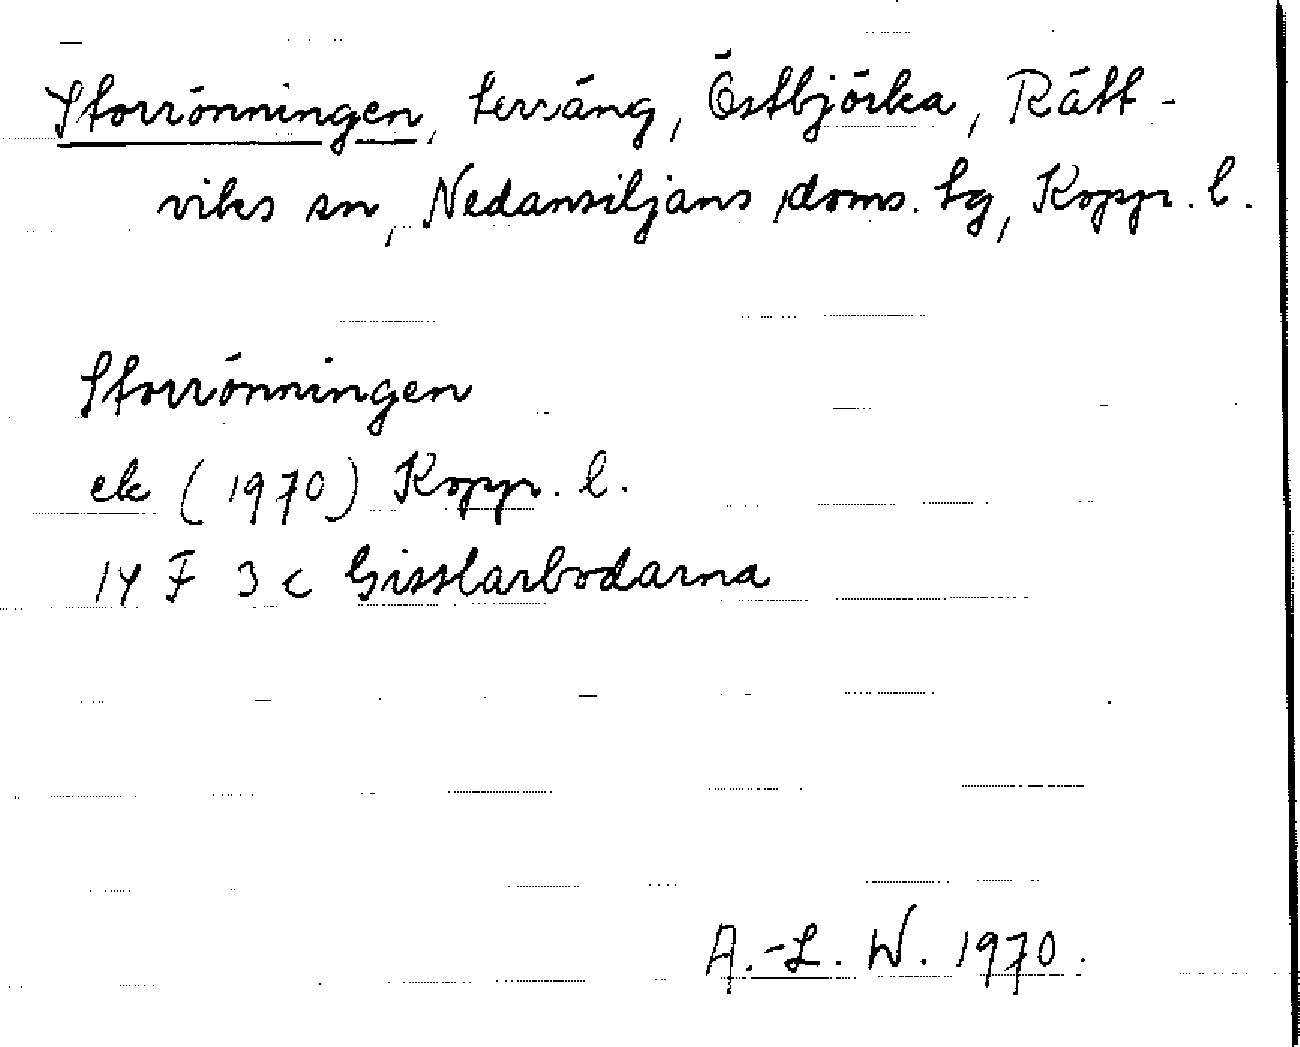 Storrönningen, terräng, Östbjörka, Rätt-
viks sn, Nedansiljans doms. tg, Kopp. l.
Storrönningen
ek (1970) Kopp. l.
14 F 3 c Gisslarbodarna
A.-L. W. 1970.